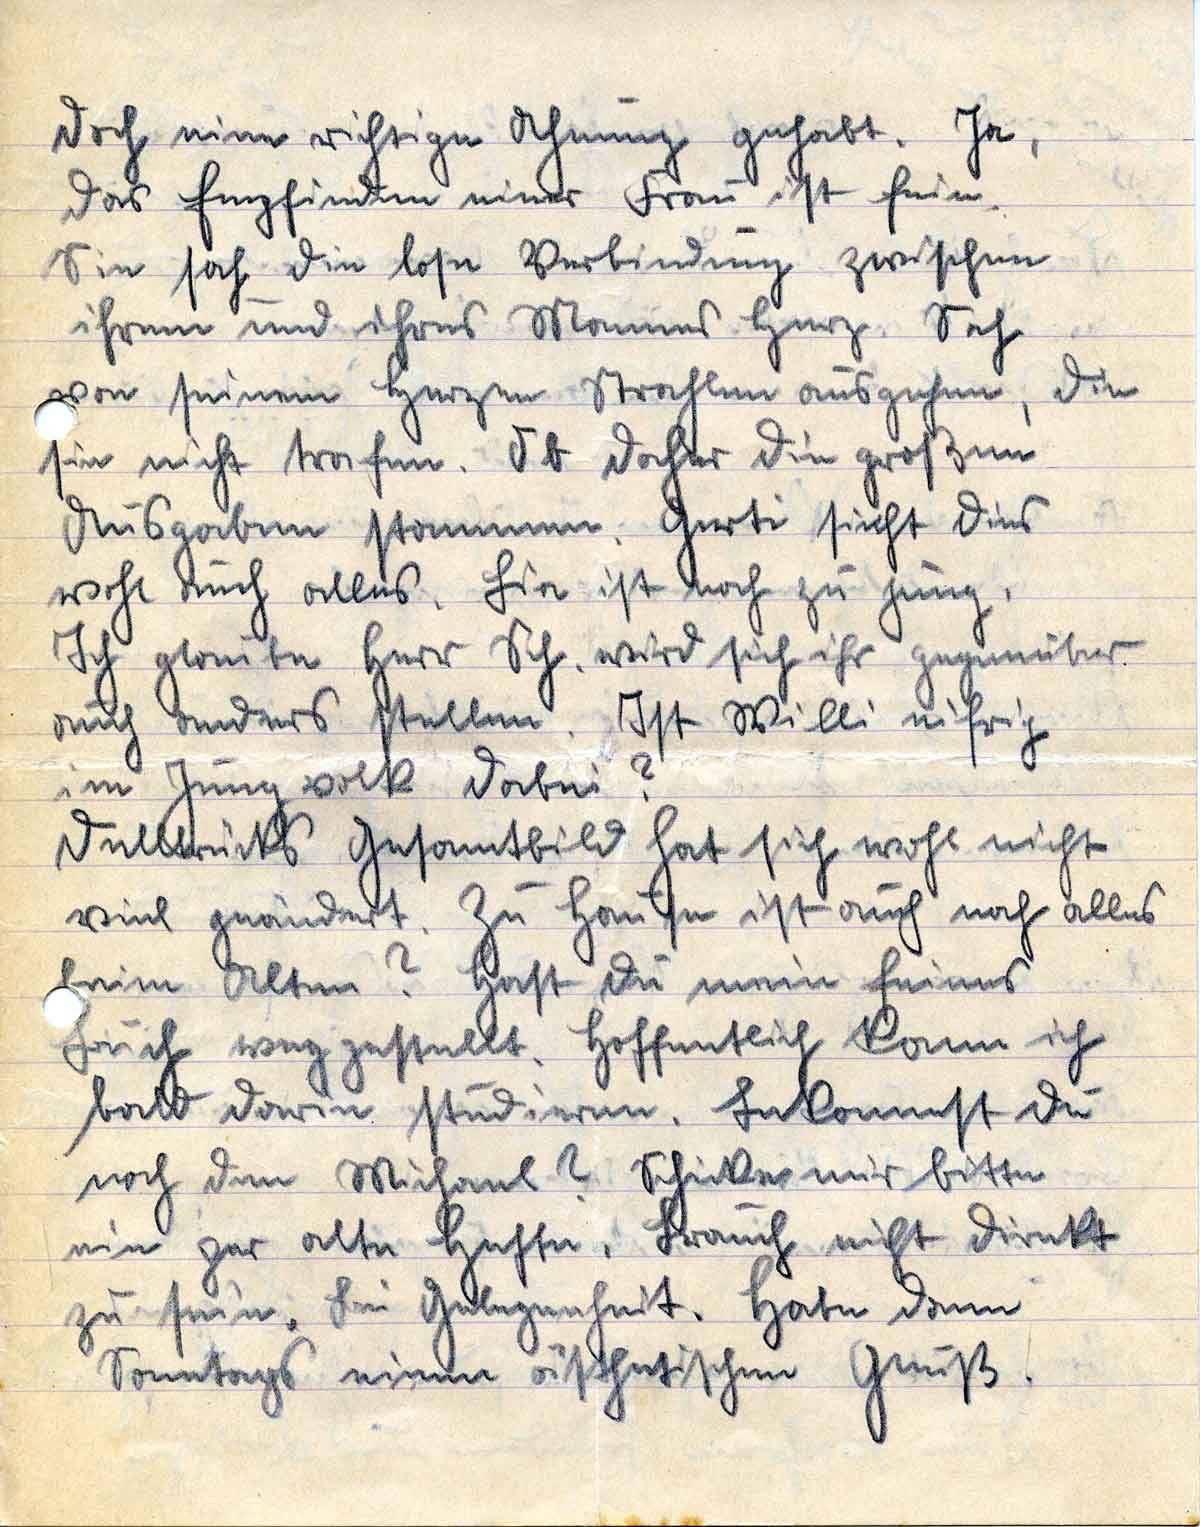 doch eine richtige Ahnung gehabt. Ja,
das Empfinden einer Frau ist fein.
Sie sah die lose Verbindung zwischen
ihrem und ihres Mannes Herz. Sah
von seinem Herzen Strahlen ausgehen, die
sie nicht trafen. Ob daher die großen
Ausgaben stammen. Gerti sieht dies
wohl auch alles. Sie ist noch zu jung.
Ich glaube Herr Sch. wird sich ihr gegenüber
auch anders stellen. Ist Willi eifrig
im Jungvolk dabei?
Delbrücks Gesamtbild hat sich wohl nicht
viel geändert. Zu Hause ist auch noch alles
beim Alten? Hast Du mein feines
Buch weggestellt. Hoffentlich kann ich
bald darin studieren. Bekommst Du
noch den Michael? Schicke mir bitte
ein par alte Hefte. Brauch nicht direkt
zu sein. Bei Gelegenheit. Habe dann
Sonntags einen ästhetischen Genuß.